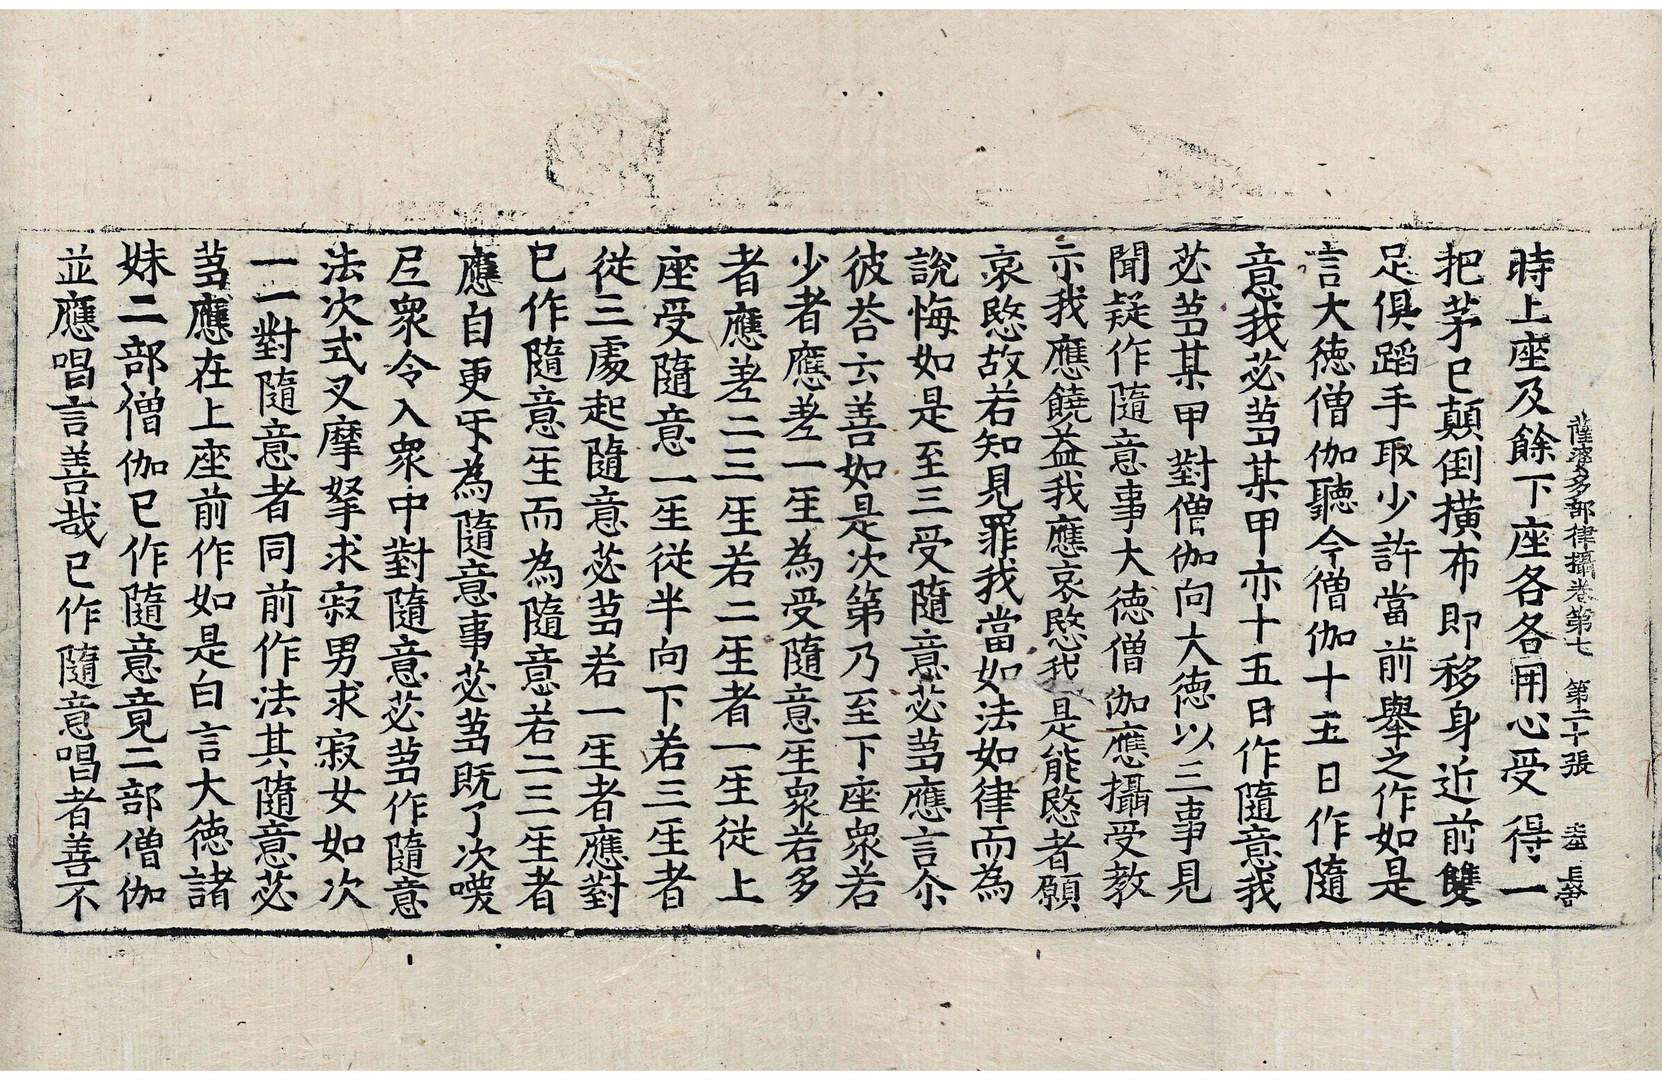 薩婆多部律攝卷第七 第二十張
時上座及餘下座各各用心受得一
把茅已顛倒橫布即移身近前雙
足俱蹈手取少許當前舉之作如是
言大德僧伽聽今僧伽十五日作隨
意我苾芻某甲亦十五日作隨意我
苾芻某甲對僧伽向大德以三事見
聞疑作隨意事大德僧伽應攝受教
示我應饒益我應哀愍我是能愍者願
哀愍故若知見罪我當如法如律而為
說悔如是至三受隨意苾芻應言尒
彼荅云善如是次第乃至下座衆若
少者應差一人為受隨意人衆若多
者應差二三人若二人者一人從上
座受隨意一人從半向下若三人者
從三處起隨意苾芻若一人者應對
已作隨意人而為隨意若二三人者
應自更互為隨意事苾芻既了次喚
尼衆令入衆中對隨意苾芻作隨意
法次式叉摩拏求寂男求寂女如次
一一對隨意者同前作法其隨意苾
芻應在上座前作如是白言大德諸
妹二部僧伽已作隨意竟二部僧伽
並應唱言善哉已作隨意唱者善不